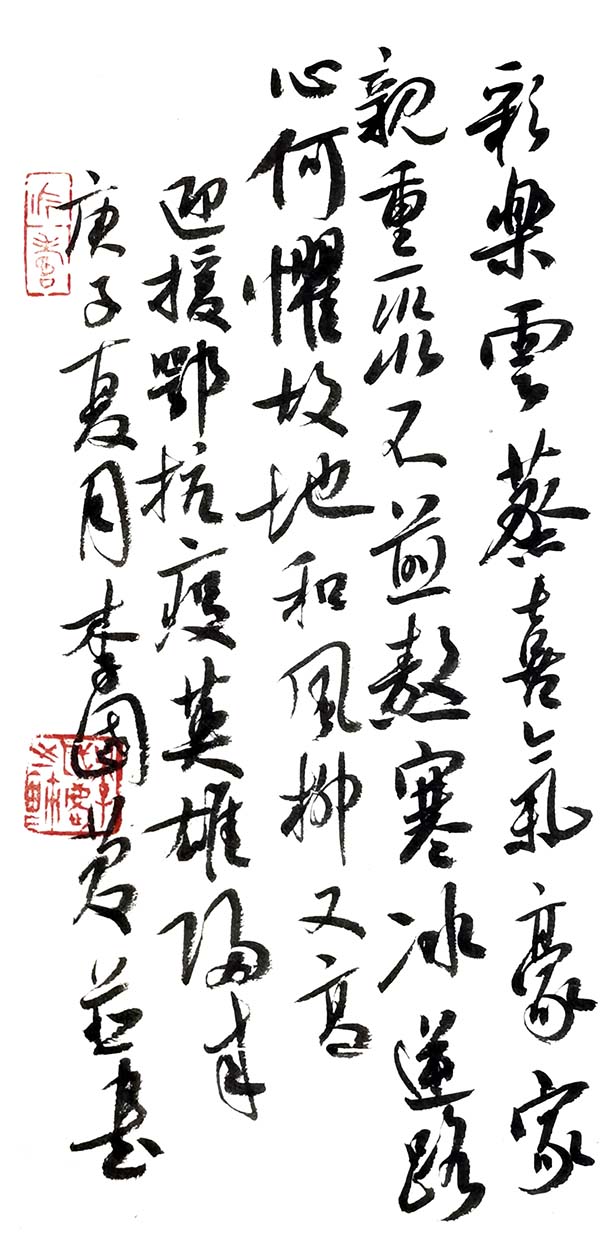 彩樂雲蒸喜氣豪家
親重聚不煎熬寒冰逆路
心何懼故地和風柳又高
迎援鄂抗疫英雄歸來
庚子夏月李國並书